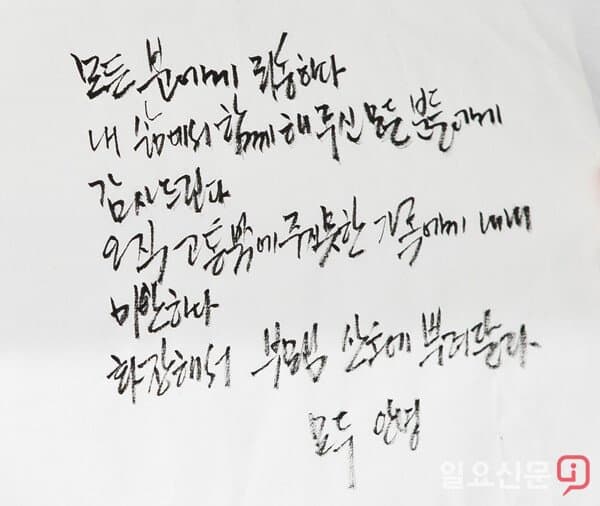 모든 분에게 죄송하다
내 삶에서 함께 해주신 모든 분들에게
감사드린다
오직 고통밖에 주지못한 가족에게 내내
미안하다
화장해서 부모님 산소에 뿌려달라.
모두 안녕
일요신문